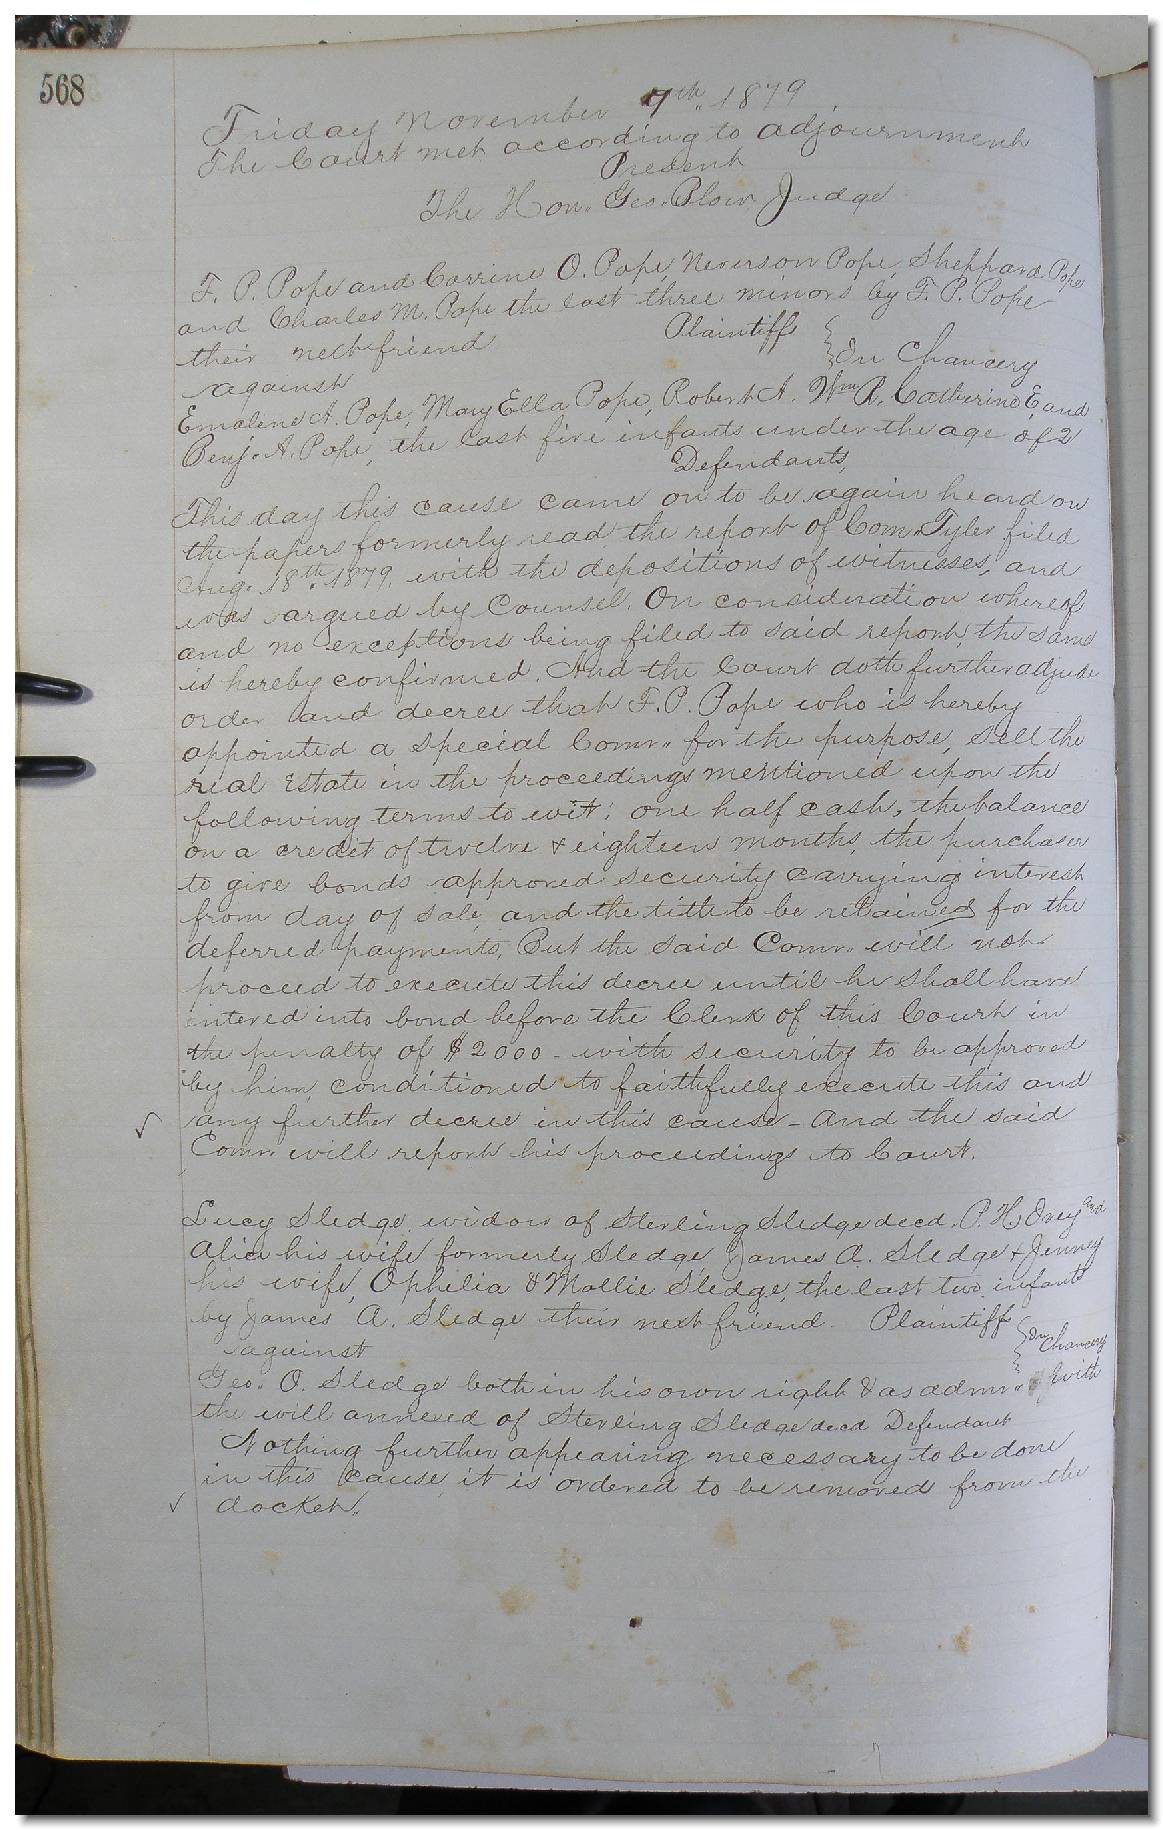 568
Friday November 7th 1879
The Court met according to adjournment
Present
The Hon. Geo. Blow Judge
F. P. Pope and Corrine O. Pope, Neverson Pope, Sheppard Pope
and Charles M. Pope the last three minors by F. P. Pope
their next friend Plaintiffs
In Chancery
against
Emalene A. Pope, Mary Ella Pope, Robert A. Wm R. Catherine E. and
Benj. A. Pope, the last five infants under the age of 2
Defendants,
This day this cause came on to be again heard on
the papers formerly read the report of Comr Tyler filed
Aug. 18th 1879, with the depositions of witnesses, and
was argued by Counsel. On consideration whereof
and no exceptions being filed to said report, the same
is hereby confirmed. And the Court doth further adjude
order and decree that F. P. Pope who is hereby
appointed a special Comr. for the purpose, sell the
real Estate in the proceedings mentioned upon the
following terms to wit; one half cash, the balance
on a credit of twelve & eighteen months, the purchaser
to give bonds approved security carrying interest
from day of sale, and the title to be retained for the
deferred payments, But the said Comr. will not
proceed to execute this decree until he shall have
entered into bond before the Clerk of this Court in
the penalty of $2000 - with security to be approved
by him, conditioned to faithfully execute this and
any further decree in this cause - And the said
Comr. will report his proceedings to Court.
Lucy Sledge, widow of Sterling Sledge decd, P. H. Ivey and
Alice his wife formerly Sledge, James A. Sledge & Jenney
his wife, Ophelia & Mollie Sledge, the last two infants
by James A. Sledge their next friend. Plaintiff
In Chancery
against
Geo. O. Sledge both in his own right & as admr. with
the will annexed of Sterling Sledge decd Defendant
Nothing further appearing necessary to be done
in this cause, it is ordered to be removed from the
docket.